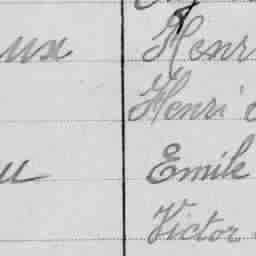 ux Henr
Henri
u Emile
Victor